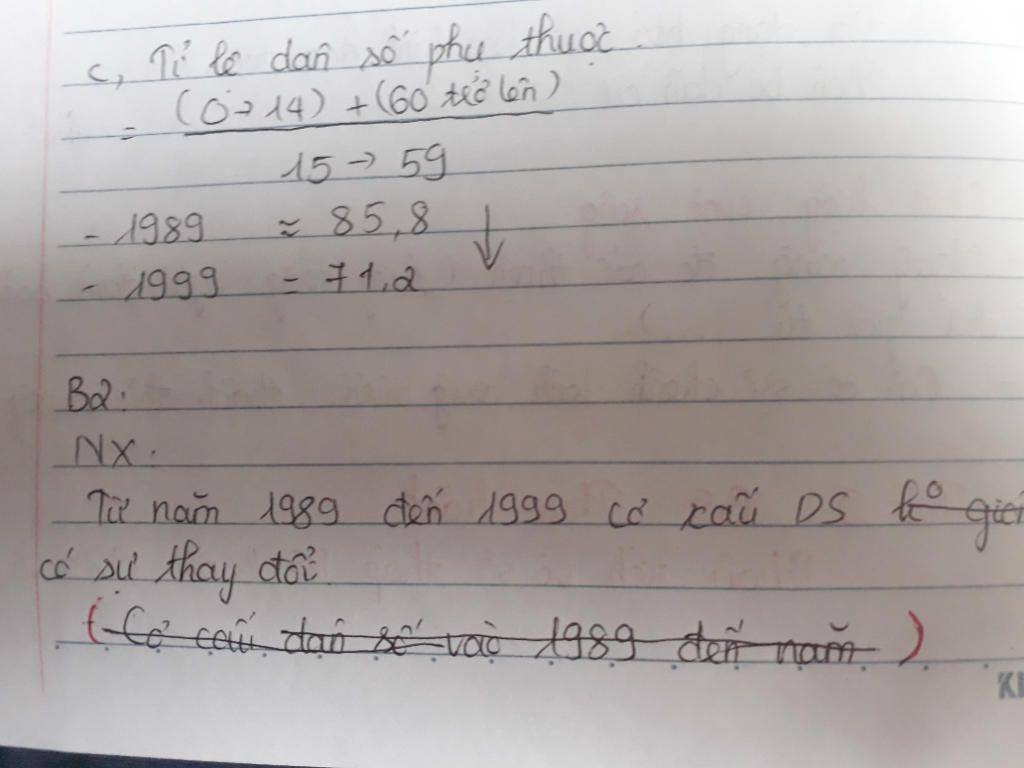 c, Tỉ lệ dân số phụ thuộc.
= (0 → 14) + (60 trở lên)
15 → 59
- 1989 ≈ 85,8 ↓
- 1999 = 71,2
B2:
NX:
Từ năm 1989 đến 1999 cơ cấu DS k° giới
có sự thay đổi
(Cơ cấu dân số vào 1989 đến năm)